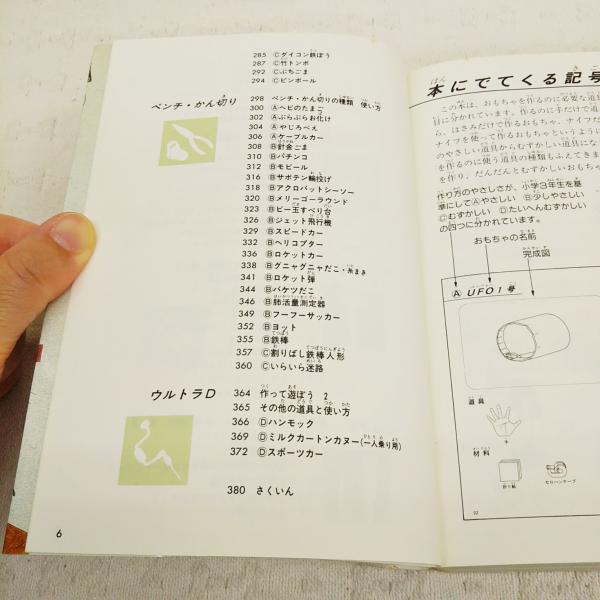 285 Ⓒダイコン鉄ぽう
287 Ⓒ竹トンボ
292 Ⓒぶちごま
294 Ⓒピンボール
ペンチ・かん切り
298 ペンチ・かん切りの種類 使い方
300 Ⓐヘビのたまご
302 Ⓐぶらぶらお化け
304 Ⓐやじろべえ
306 Ⓐケーブルカー
308 Ⓑ針金ごま
310 Ⓑパチンコ
312 Ⓑモビール
316 Ⓑサボテン輪投げ
318 Ⓑアクロバットシーソー
320 Ⓑメリーゴーラウンド
323 Ⓑビー玉すべり台
326 Ⓑジェット飛行機
329 Ⓑスピードカー
332 Ⓑヘリコプター
336 Ⓑロケットカー
338 Ⓑグニャグニャだこ・糸まき
341 Ⓑロケット弾
344 Ⓑバケツだこ
346 Ⓑ肺活量測定器
349 Ⓑフーフーサッカー
352 Ⓑヨット
355 Ⓑ鉄棒
357 Ⓒ割りばし鉄棒人形
360 Ⓒいらいら迷路
ウルトラD
364 作って遊ぼう 2
365 その他の道具と使い方
366 Ⓓハンモック
369 Ⓓミルクカートンカヌー(一人乗り用)
372 Ⓓスポーツカー
380 さくいん
6
本にでてくる記号
この本は、おもちゃを作るのに必要な道具
目に分かれています。作るのに手だけで
ら、はさみだけで作るおもちゃ、ナイフだ
ナイフを使って作るおもちゃというように
のやさしい道具からむずかしい道具にな
を作るのに使う道具の種類もふえてきま
を作り、だんだんとむずかしいおもちゃ
作り方のやさしさが、小学3年生を基
準にしてⒶやさしい Ⓑ少しやさしい
Ⓒむずかしい Ⓓたいへんむずかしい
の四つに分かれています。
おもちゃの名前
完成図
Ⓐ UFO1号
道具
手
材料
折り紙
セロハンテープ
22